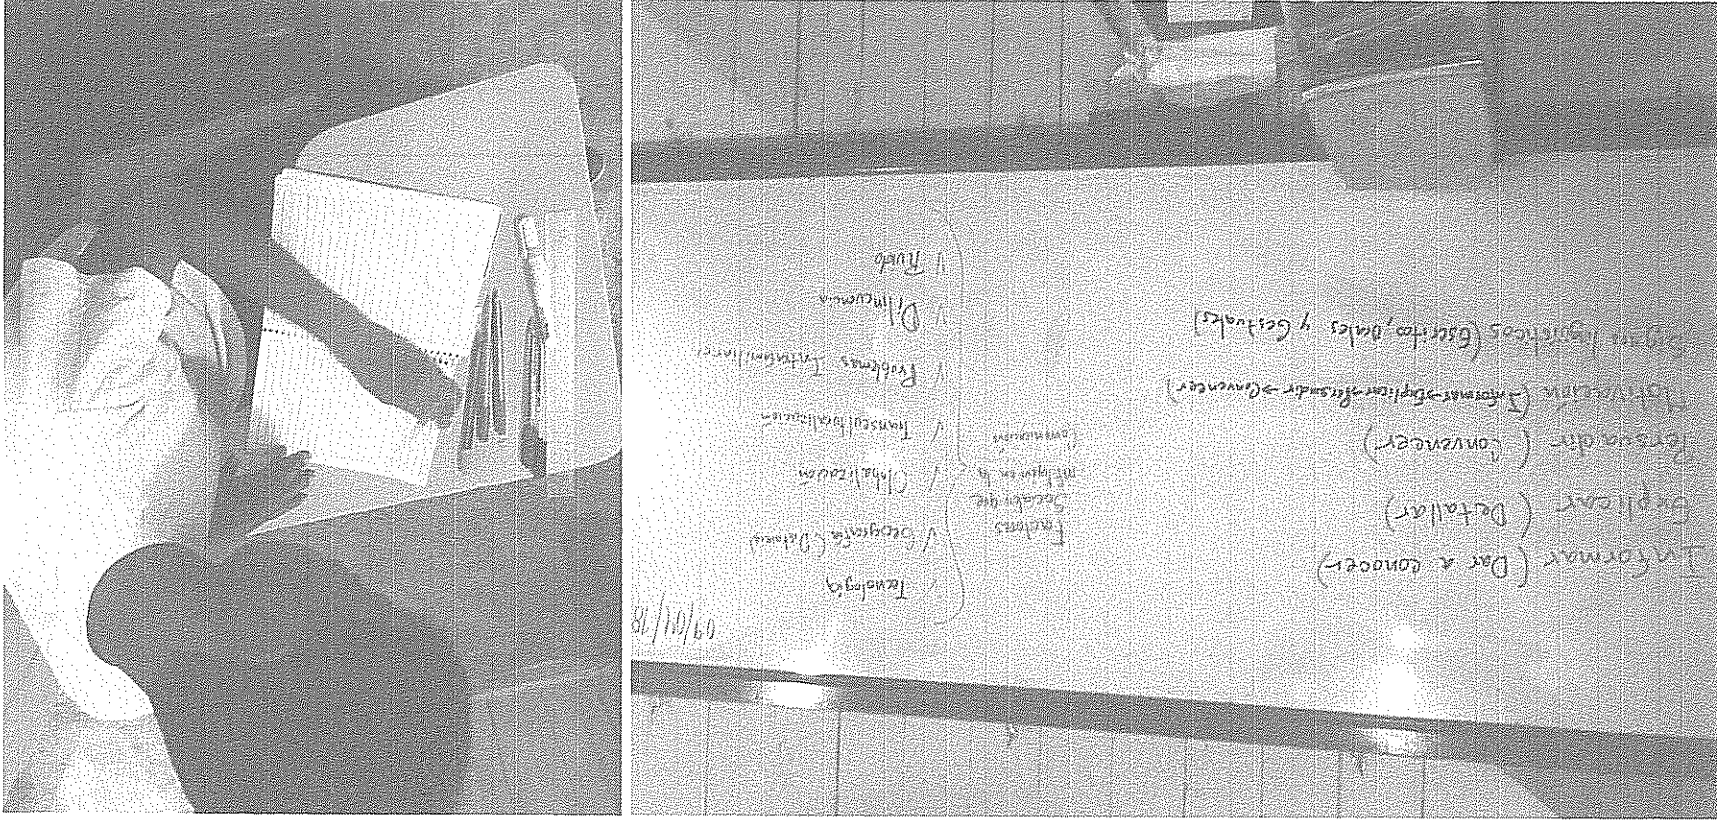 Informar (Dar a conocer)
Explicar (Detallar)
Persuadir (Convencer)
Motivación (Informar→Explicar→Persuadir→Convencer)
lingüísticos (Escritos, Orales y Gestuales)
09/04/18
Factores
Sociales que
influyen en la
Comunicación
Tecnología
✓ Geografía
✓ Globalización
✓ Transculturalización
✓ Problemas Intrafamiliares
✓ Delincuencia
✓ Ruido